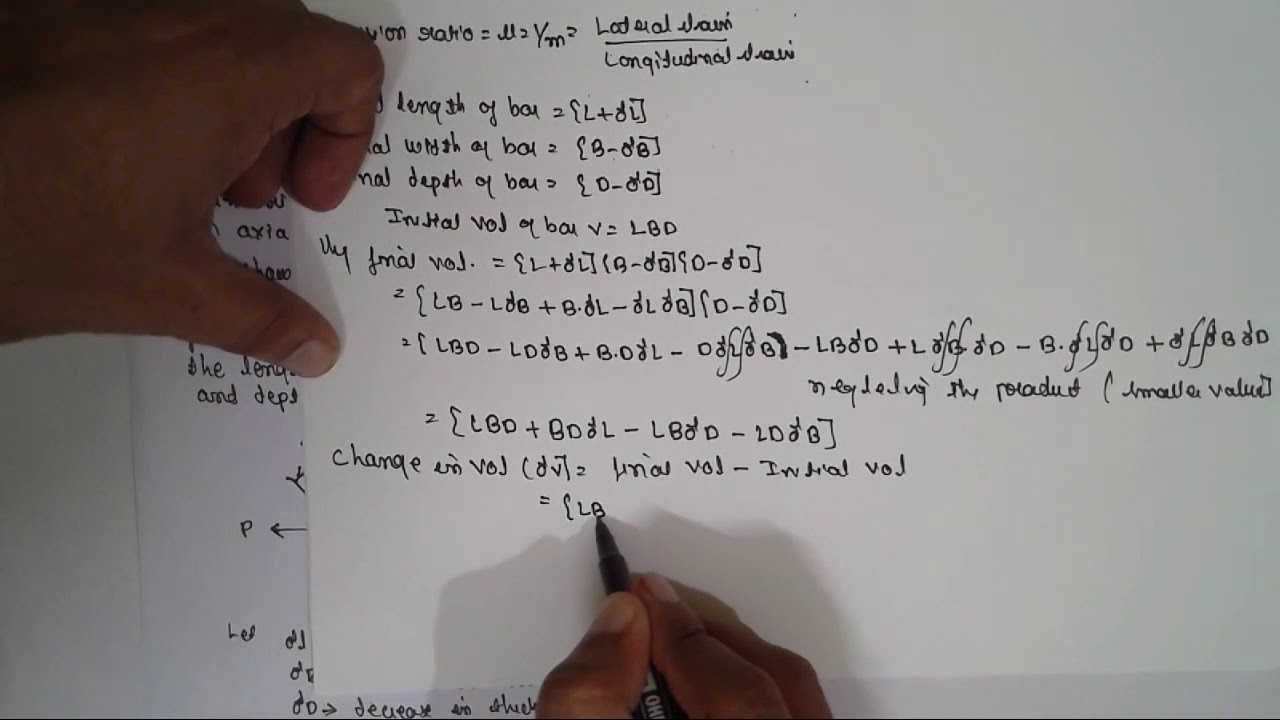 ratio = μ = 1/m = Lateral strain
Longitudinal strain
length of bar = {L+∂L}
width of bar = {B-∂B}
depth of bar = {D-∂D}
Initial vol of bar V = LBD
axia
final vol. = {L+∂L}{B-∂B}{D-∂D}
= {LB - L∂B + B.∂L - ∂L∂B}{D-∂D}
= {LBD - LD∂B + B.D∂L - D∂L∂B} - LB∂D + L∂B∂D - B.∂L∂D + ∂L∂B∂D
the leng
neglecting the product (smaller value)
and dept
= {LBD + BD∂L - LB∂D - LD∂B}
Change in vol (∂v) = final vol - Initial vol
= {LB
P ←
Let ∂l
∂D → decrease in thick